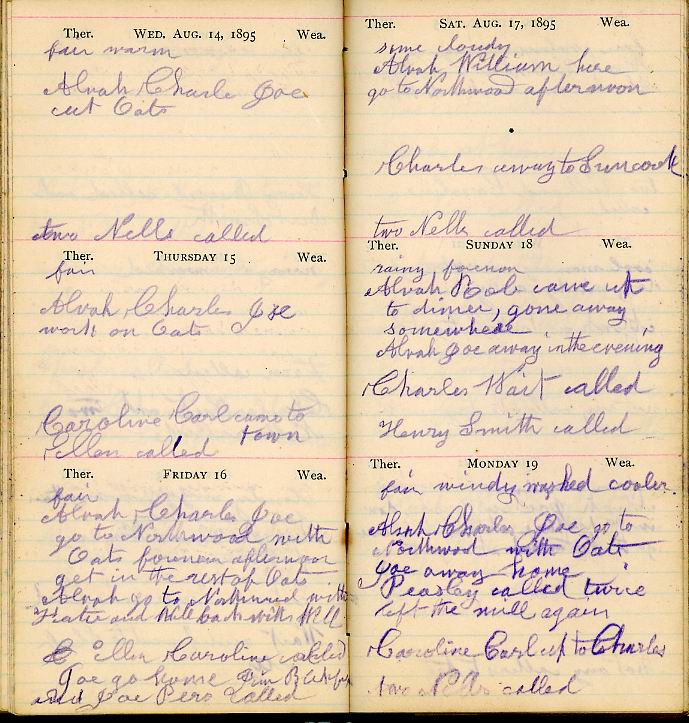 Ther. WED. AUG. 14, 1895 Wea.
fair warm
Alvah Charles Joe
cut Oats
two Nells called
Ther. THURSDAY 15 Wea.
fair
Alvah Charles Joe
work on Oats
Caroline Carl came to
town
Ellen called
Ther. FRIDAY 16 Wea.
fair
Alvah Charles Joe
go to Northwood with
Oats forenoon afternoon
get in the rest of Oats
Alvah go to Northwood with
and Will back with Will
Ellen Caroline called
Joe go home
and Joe Pero called
Ther. SAT. AUG. 17, 1895 Wea.
some cloudy
Alvah William here
go to Northwood afternoon
Charles away to Suncook
two Nells called
Ther. SUNDAY 18 Wea.
rainy forenoon
Alvah Bob came up
to dinner, gone away
somewhere
Alvah Joe away in the evening
Charles Wait called
Henry Smith called
Ther. MONDAY 19 Wea.
fair windy washed cooler.
Alvah Charles Joe go to
Northwood with Oats
Joe away home
Peasley called twice
left the mill again
Caroline Carl up to Charles
two Nells called